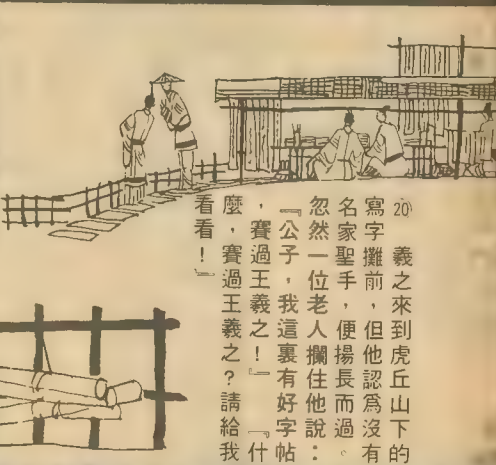 ⑳　羲之來到虎丘山下的
寫字攤前，但他認爲沒有
名家聖手，便揚長而過。
忽然一位老人攔住他說：
『公子，我這裏有好字帖
，賽過王羲之！』　『什
麼，賽過王羲之？請給我
看看！』